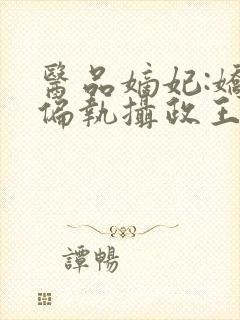 醫品嫡妃:嬌
偏執攝政王
譚暢